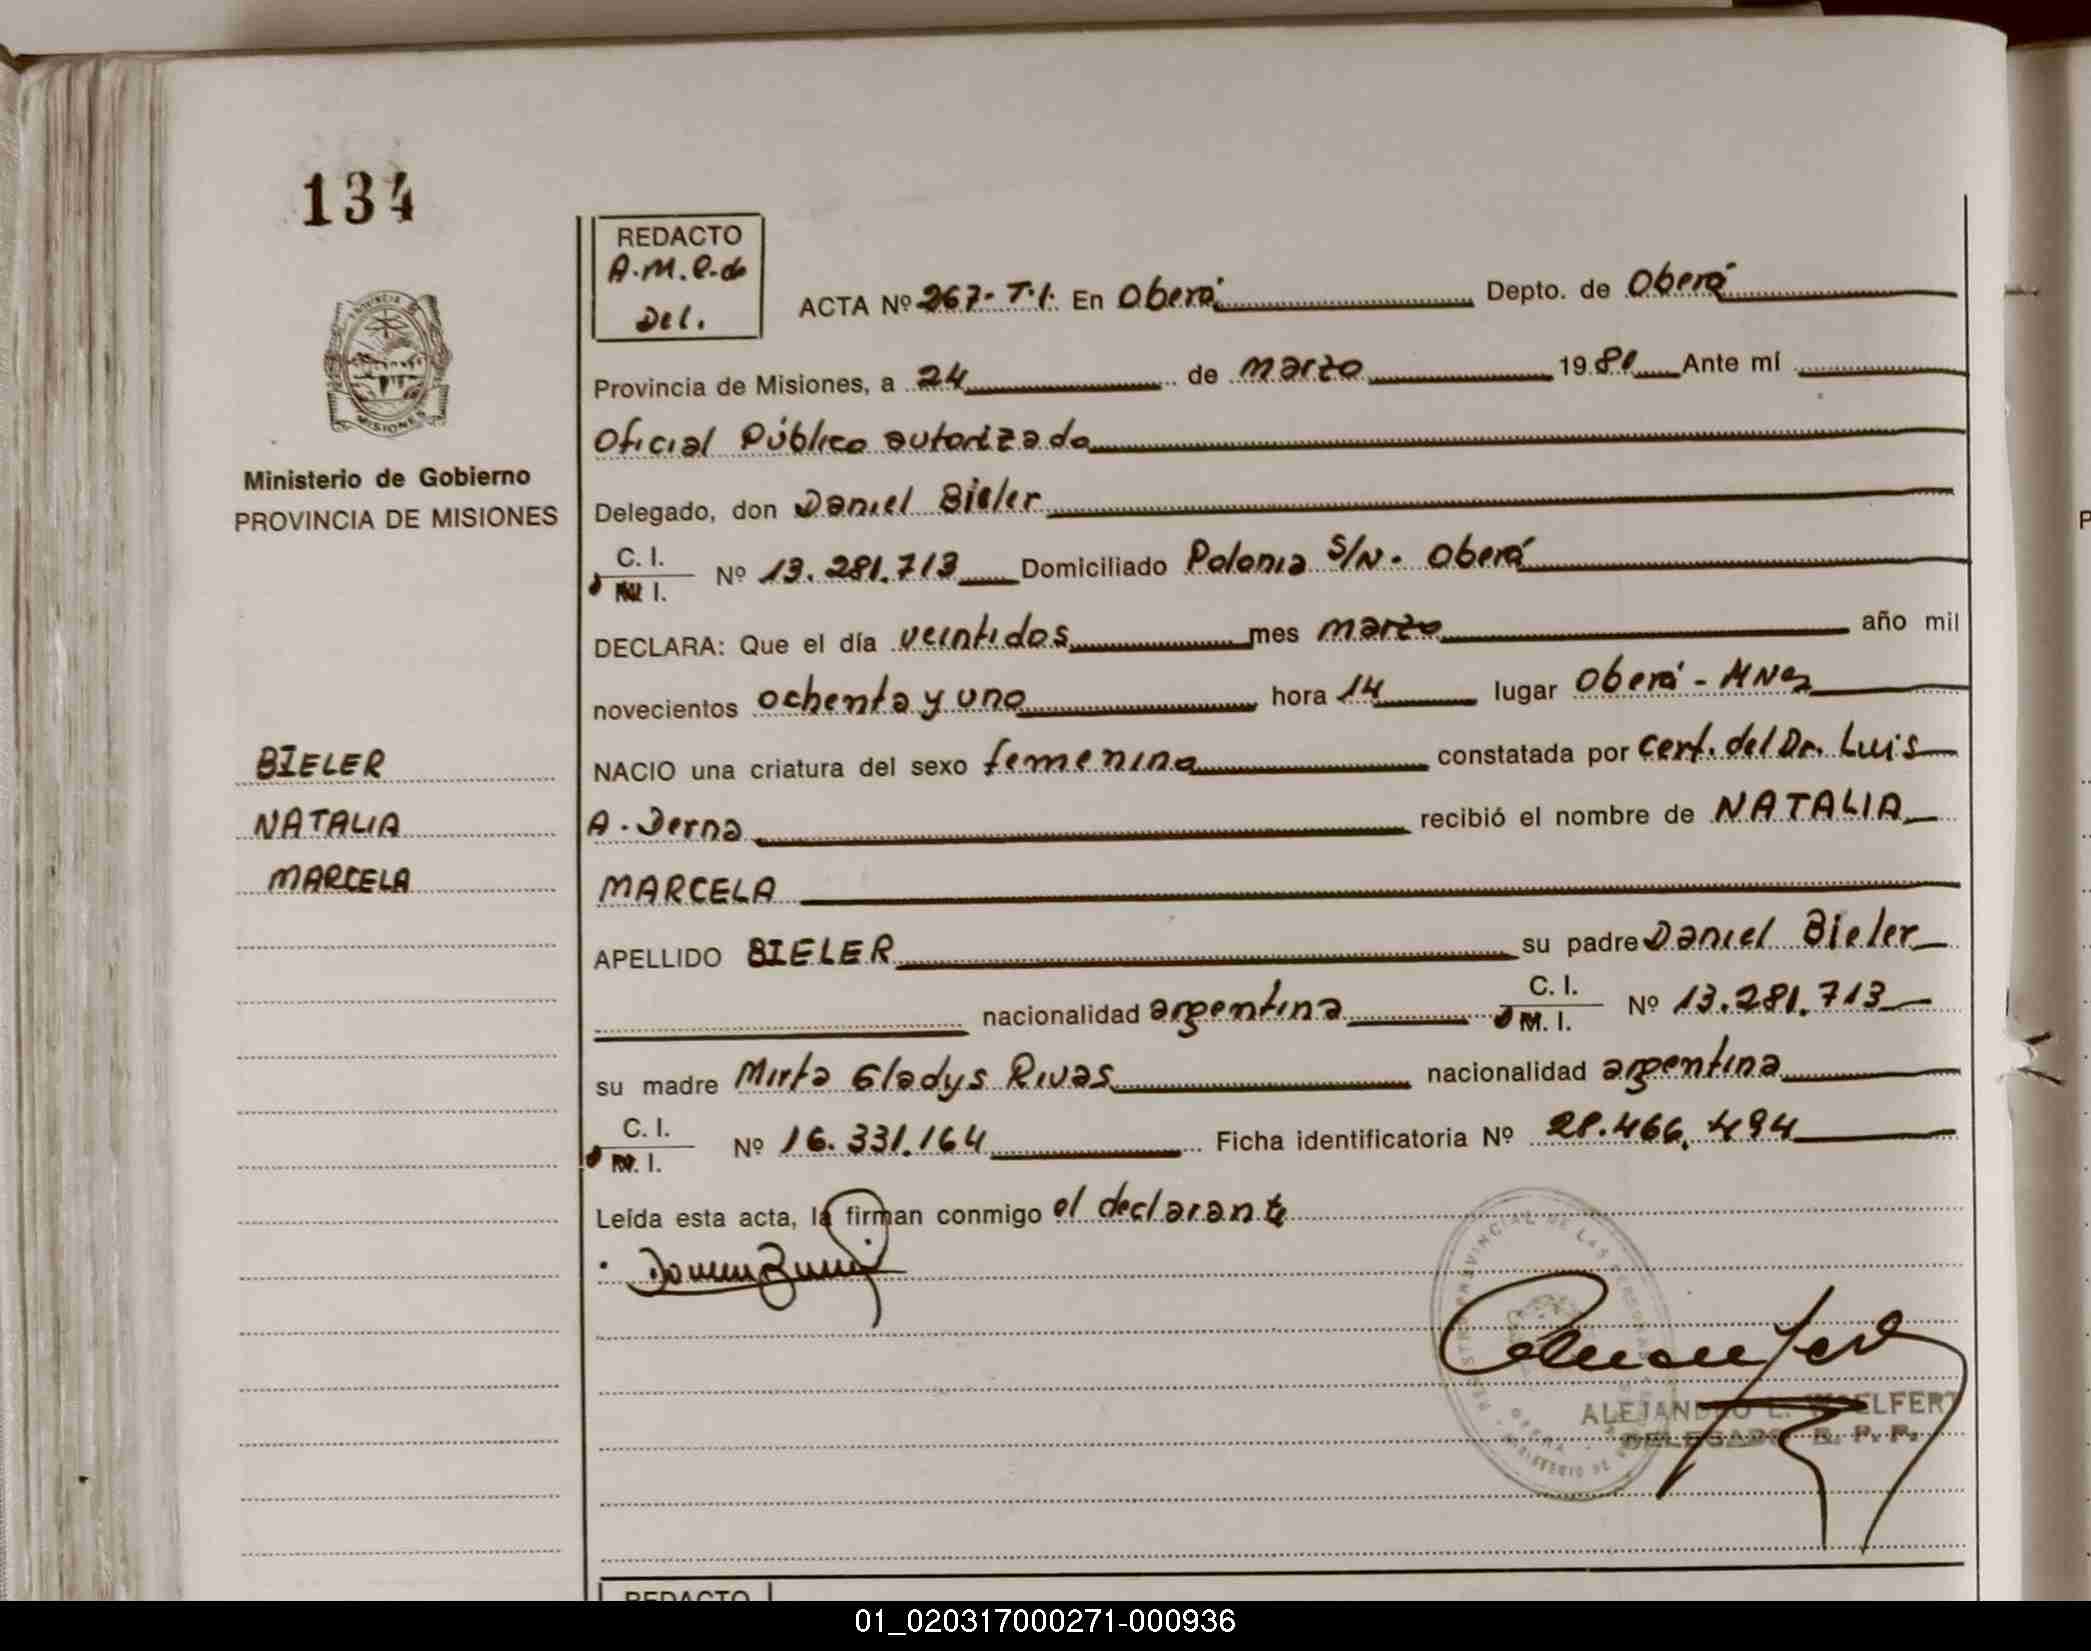 134
REDACTO
A.M.R. de
Del.
ACTA Nº 267- T.I. En Oberá Depto. de Oberá
Provincia de Misiones, a 24 de marzo 1981 Ante mí
Oficial Público autorizado
Delegado, don Daniel Bieler
C. I.
M. I. Nº 13.281.713 Domiciliado Polonia S/N. Oberá
DECLARA: Que el día veintidos mes marzo año mil
novecientos ochenta y uno hora 14 lugar Oberá - MNes
NACIO una criatura del sexo femenino constatada por cert. del Dr. Luis
A. Derna recibió el nombre de NATALIA
MARCELA
APELLIDO BIELER su padre Daniel Bieler
nacionalidad argentina C. I.
M. I. Nº 13.281.713
su madre Mirta Gladys Rivas nacionalidad argentina
C. I.
M. I. Nº 16.331.164 Ficha identificatoria Nº 28.466.494
Leída esta acta, la firman conmigo el declarante
PROVINCIA
MISIONES
Ministerio de Gobierno
PROVINCIA DE MISIONES
BIELER
NATALIA
MARCELA
ALEJANDRO L. WOELFERT
DELEGADO R. P. P.
REDACTO
01_020317000271-000936